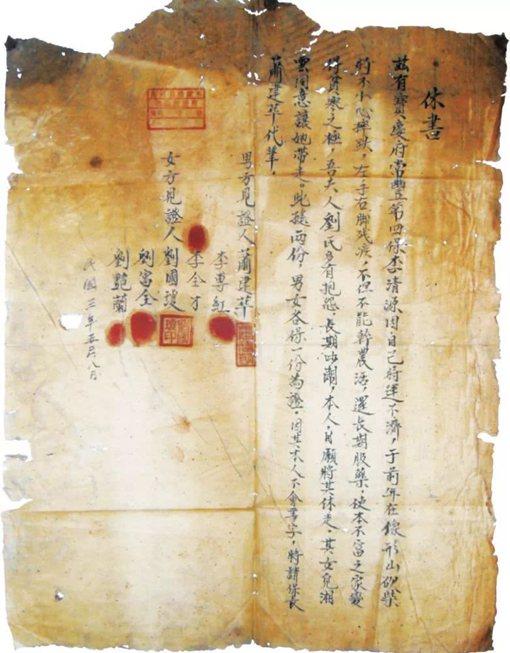 休書
茲有寶慶府常豐第四保李清源因自己時運不濟，于前年在像形山砍柴
時不小心摔跌，左手右脚残疾，不但不能幹農活，還長期服藥，使本不富之家變
得貧寒之極，吾夫人劉氏多有抱怨，長期吵鬧，本人自願將其休走，其女兒湘
雲同意讓她帶走。此據兩份，男女各保一份為證，因其本人不會寫字，特請保長
蕭建華代筆，
男方見證人蕭建華
李專紅
李全才
女方見證人劉國
劉富全
劉艷蘭
民國三年五月八日